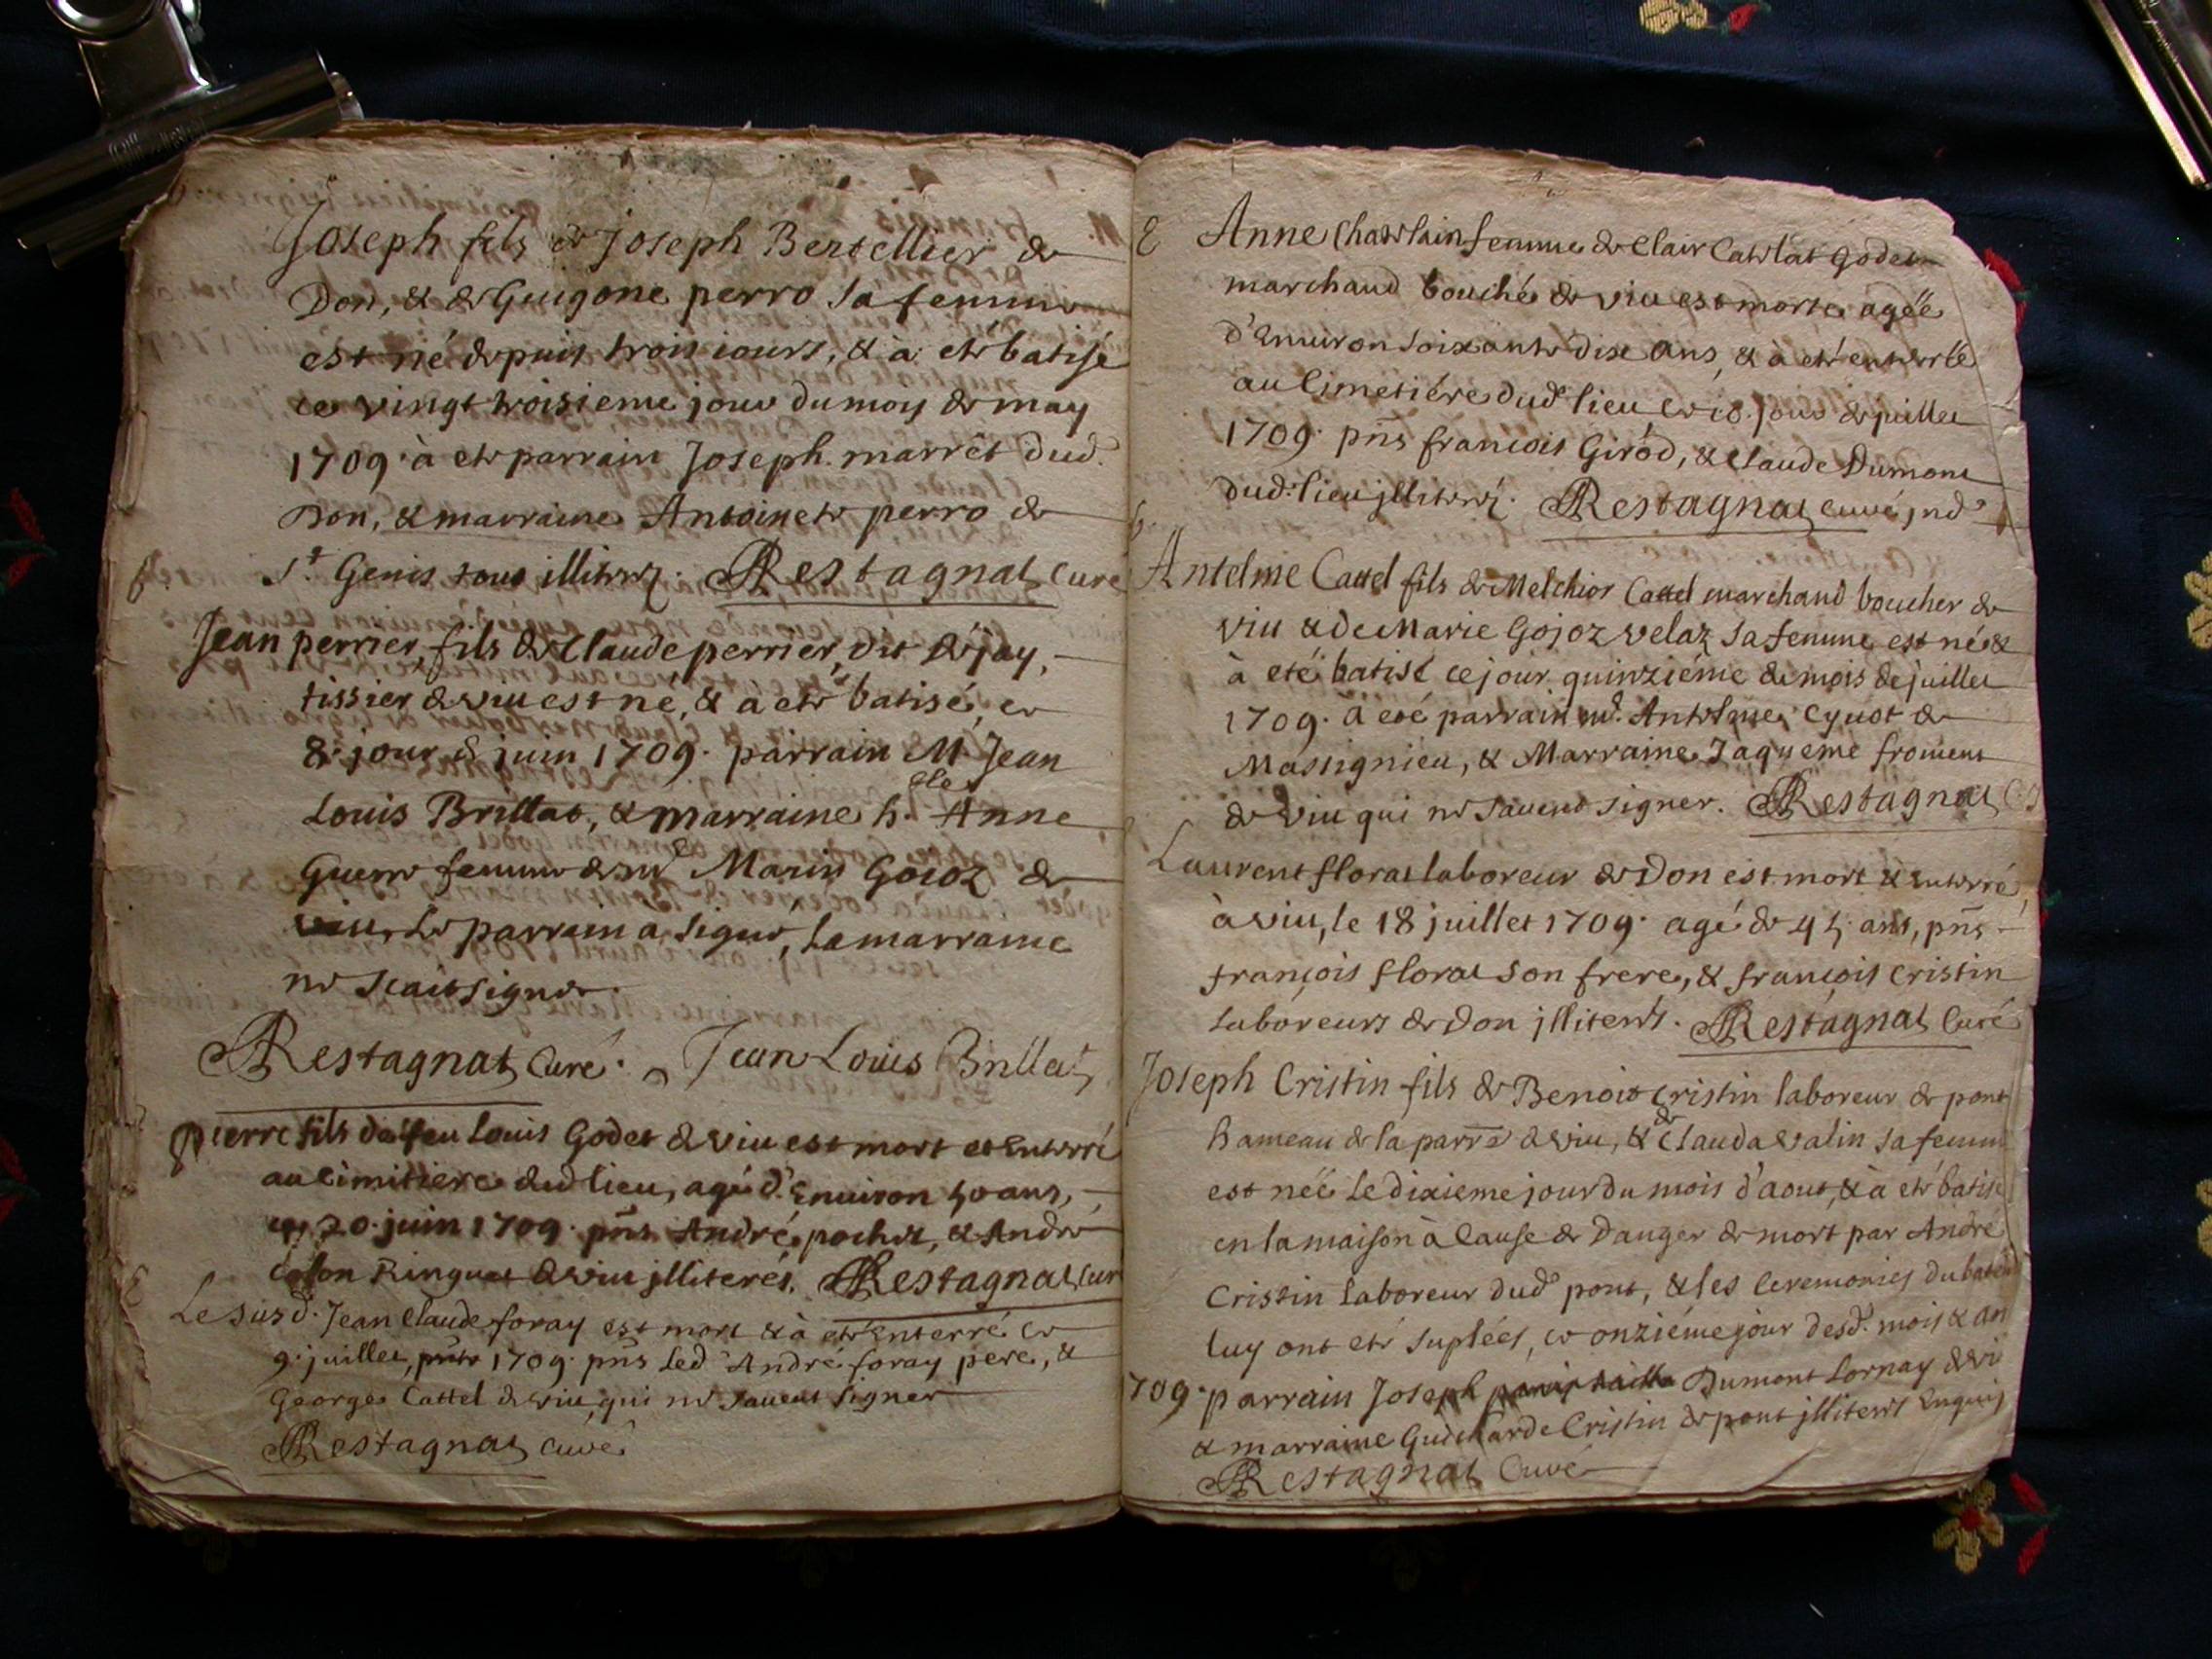 Joseph fils de Joseph Bertellier de
Don, & de Guigone perro sa femme
est né depuis trois iours, & à eté batisé
ce vingt troisieme jour du moy de may
1709. à eté parrain Joseph marrêt dud.
Don, & marraine Antoinete perro de
St. Genis tous illiterez. Restagnat Curé
Jean perrier, fils de Claude perrier, dit Dejay,
tissier de viu est né, & a eté batisé, ce
8. jour de juin 1709. parrain Mr. Jean
Louis Brillat, & marraine h.ble Anne
femme de mre Marin Gojoz de
viu, Le parrain a signé, La marraine
ne scait signer.
Restagnat Curé. Jean Louis Brillat
pierre fils de feu Louis Godet de viu est mort et Enterré
au cimitiere dud lieu, agé d'Enuiron 50 ans,
ce 20. juin 1709. pñs André pochet, & André
Ringuet de viu jlliterés. Restagnat Cur
Le susd. Jean Claude foray est mort & à eté Enterré ce
9. juillet, 1709. pñs Led. André foray pere, &
George Cattel de viu, qui ne sauent signer
Restagnat Curé
Anne femme de Clair Catelat Godet
marchand bouché de viu est morte agéë
d'Enuiron soixante dix ans, & à eté enterréë
au Cimetiére dud. lieu ce 10. jour de juillet
1709. pñs francois Girod, & Claude Dumont
dud. lieu jlliterez. Restagnat Curé jnd.
Antelme Cattel fils de Melchior Cattel marchand boucher de
viu & de Marie Gojoz velaz sa femme, est né &
à eté batisé ce jour quinziéme de mois de juillet
1709. à eté parrain mre. Antelme Cyuot de
Massignieu, & Marraine Jaqueme froment
de viu qui ne sauent signer. Restagnat
Laurent florat laboreur de Don est mort & enterré,
à viu, le 18 juillet 1709. agé de 45. ans, pñs
françois florat son frere, & françois Cristin
Laboreurs de Don jlliterés. Restagnat Curé
Joseph Cristin fils de Benoit Cristin laboreur de pont
hameau de la parre de viu, & de Clauda valin sa femme
est néë Le dixieme jour du mois d'aout, & à eté batisé
en la maison à Cause de Danger de mort par André
Cristin Laboreur dud. pont, & les Ceremonies du
luy ont eté suplées, ce onziéme jour desd. mois & an
1709. parrain Joseph Dumont Lornay de vi
& marraine Guicharde Cristin de pont jlliterés Enquis
Restagnat Curé